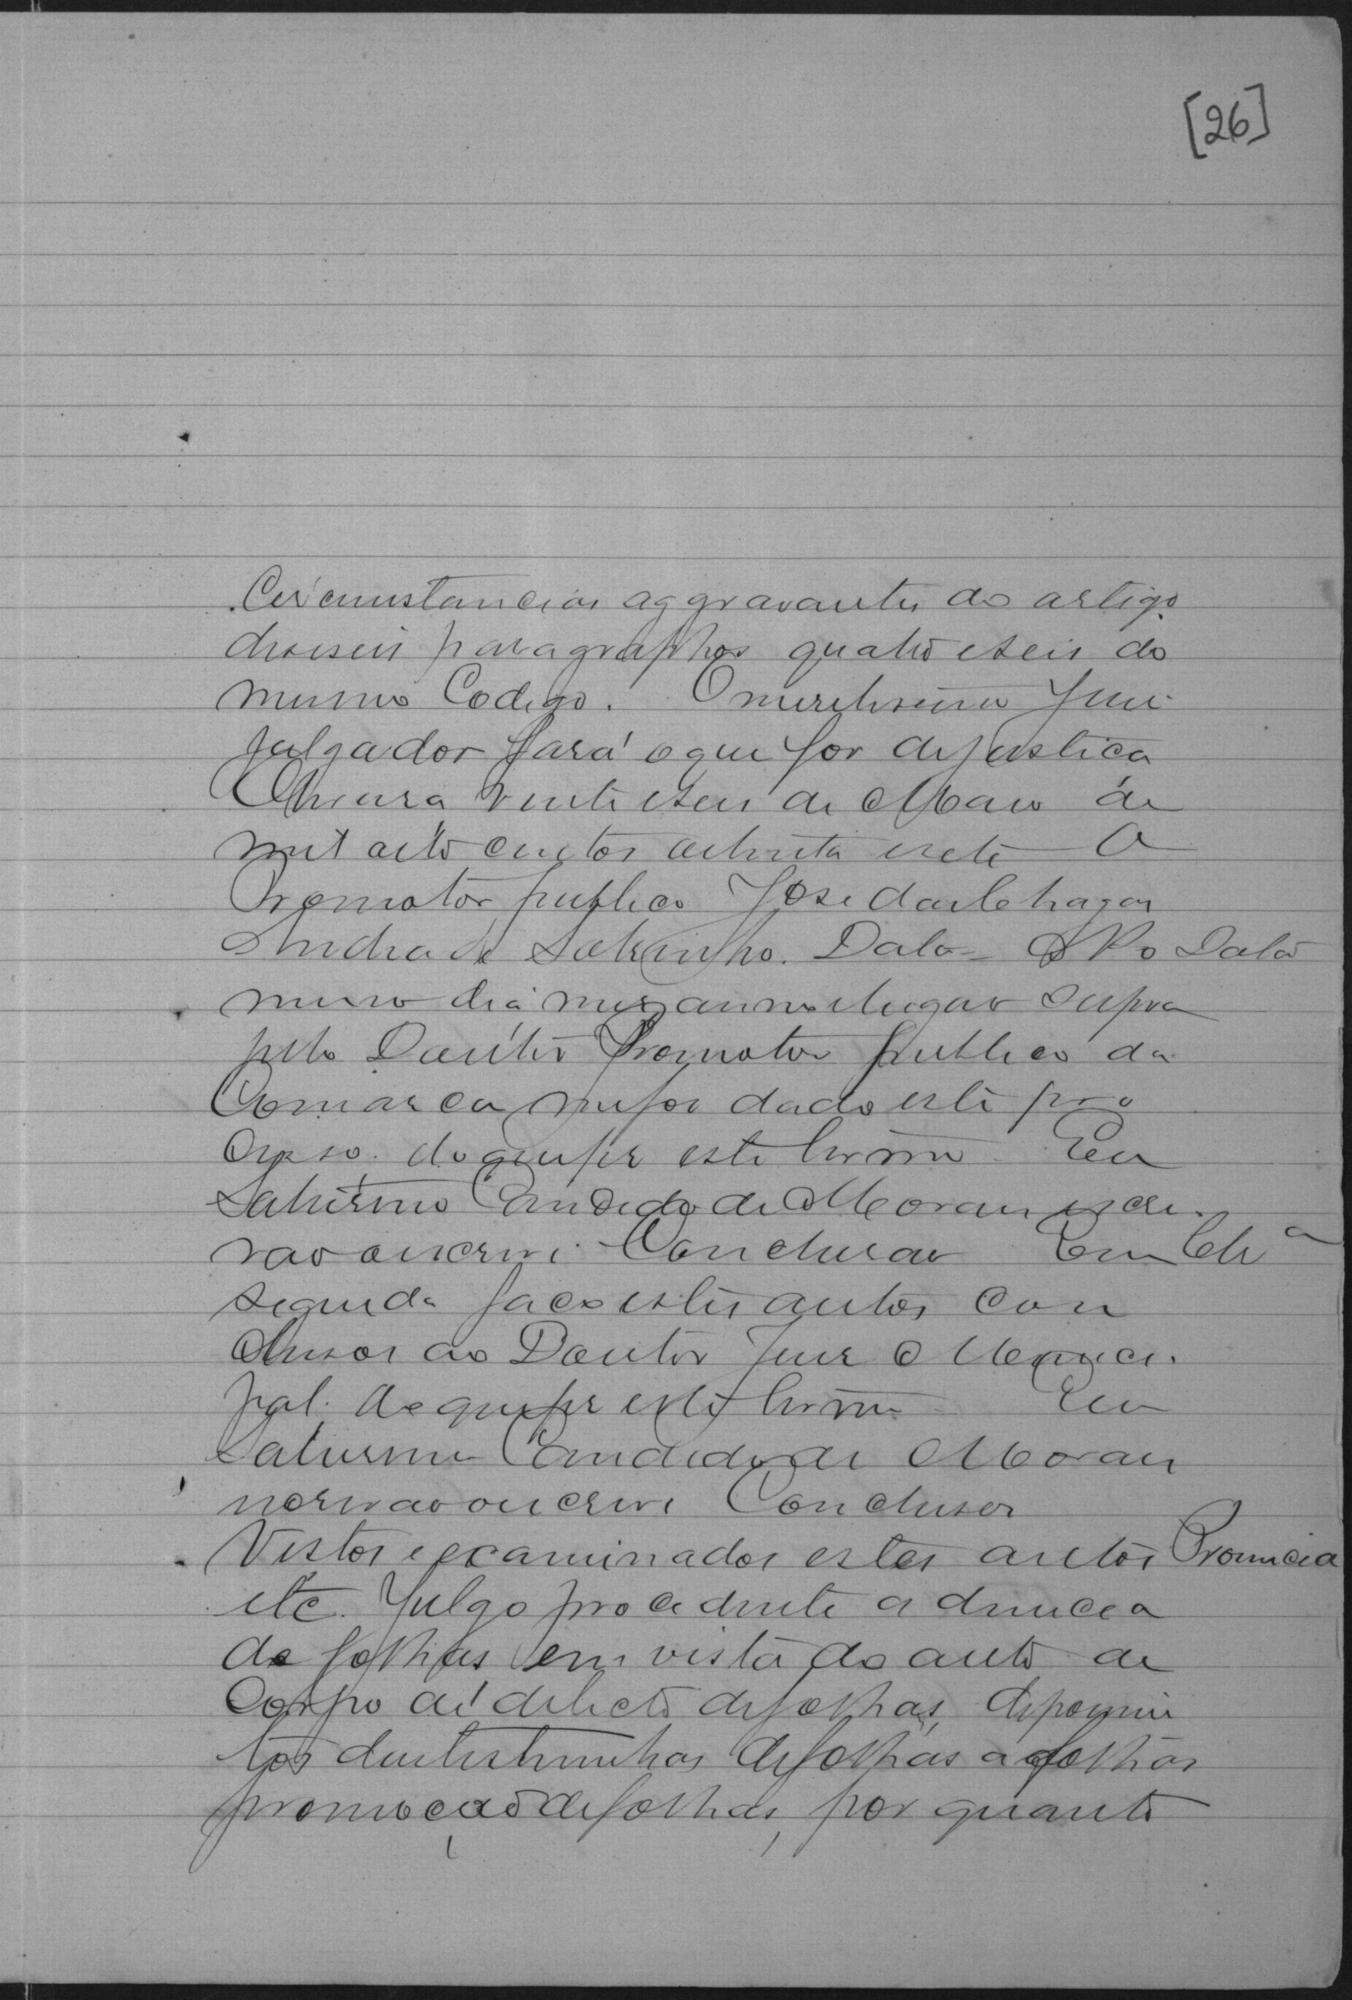 [26]
Circumstancias aggravantes do artigo
deseseis paragraphos quatro e seis do
mesmo Codigo. O meretissimo Juiz
julgador fará o que for de justiça
vinte e seis de Maio de
mil oito centos oitenta e sete O
Promotor publico José das Chagas
Andrade Sobrinho. Data Data
mesmo dia mez anno e lugar supra
pelo Doutor Promotor publico da
Comarca me foi dado este pro
cesso do que fiz este termo Eu
Saturnino Candido de Moraes escri
vão o escrevi. Conclusão Em Cls.ª
seguida faço estes autos con
clusos ao Doutor Juiz Munici
pal do que fiz este termo Eu
Saturnino Candido de Moraes
escrivão o escrevi Conclusos
Vistos e examinados estes autos Pronuncia
etc. Julgo procedente a denucia
de folhas em vista do auto de
Corpo de delicto de folhas, depoimen
tos das testemunhas de folhas a folhas
promoção de folhas, por quanto